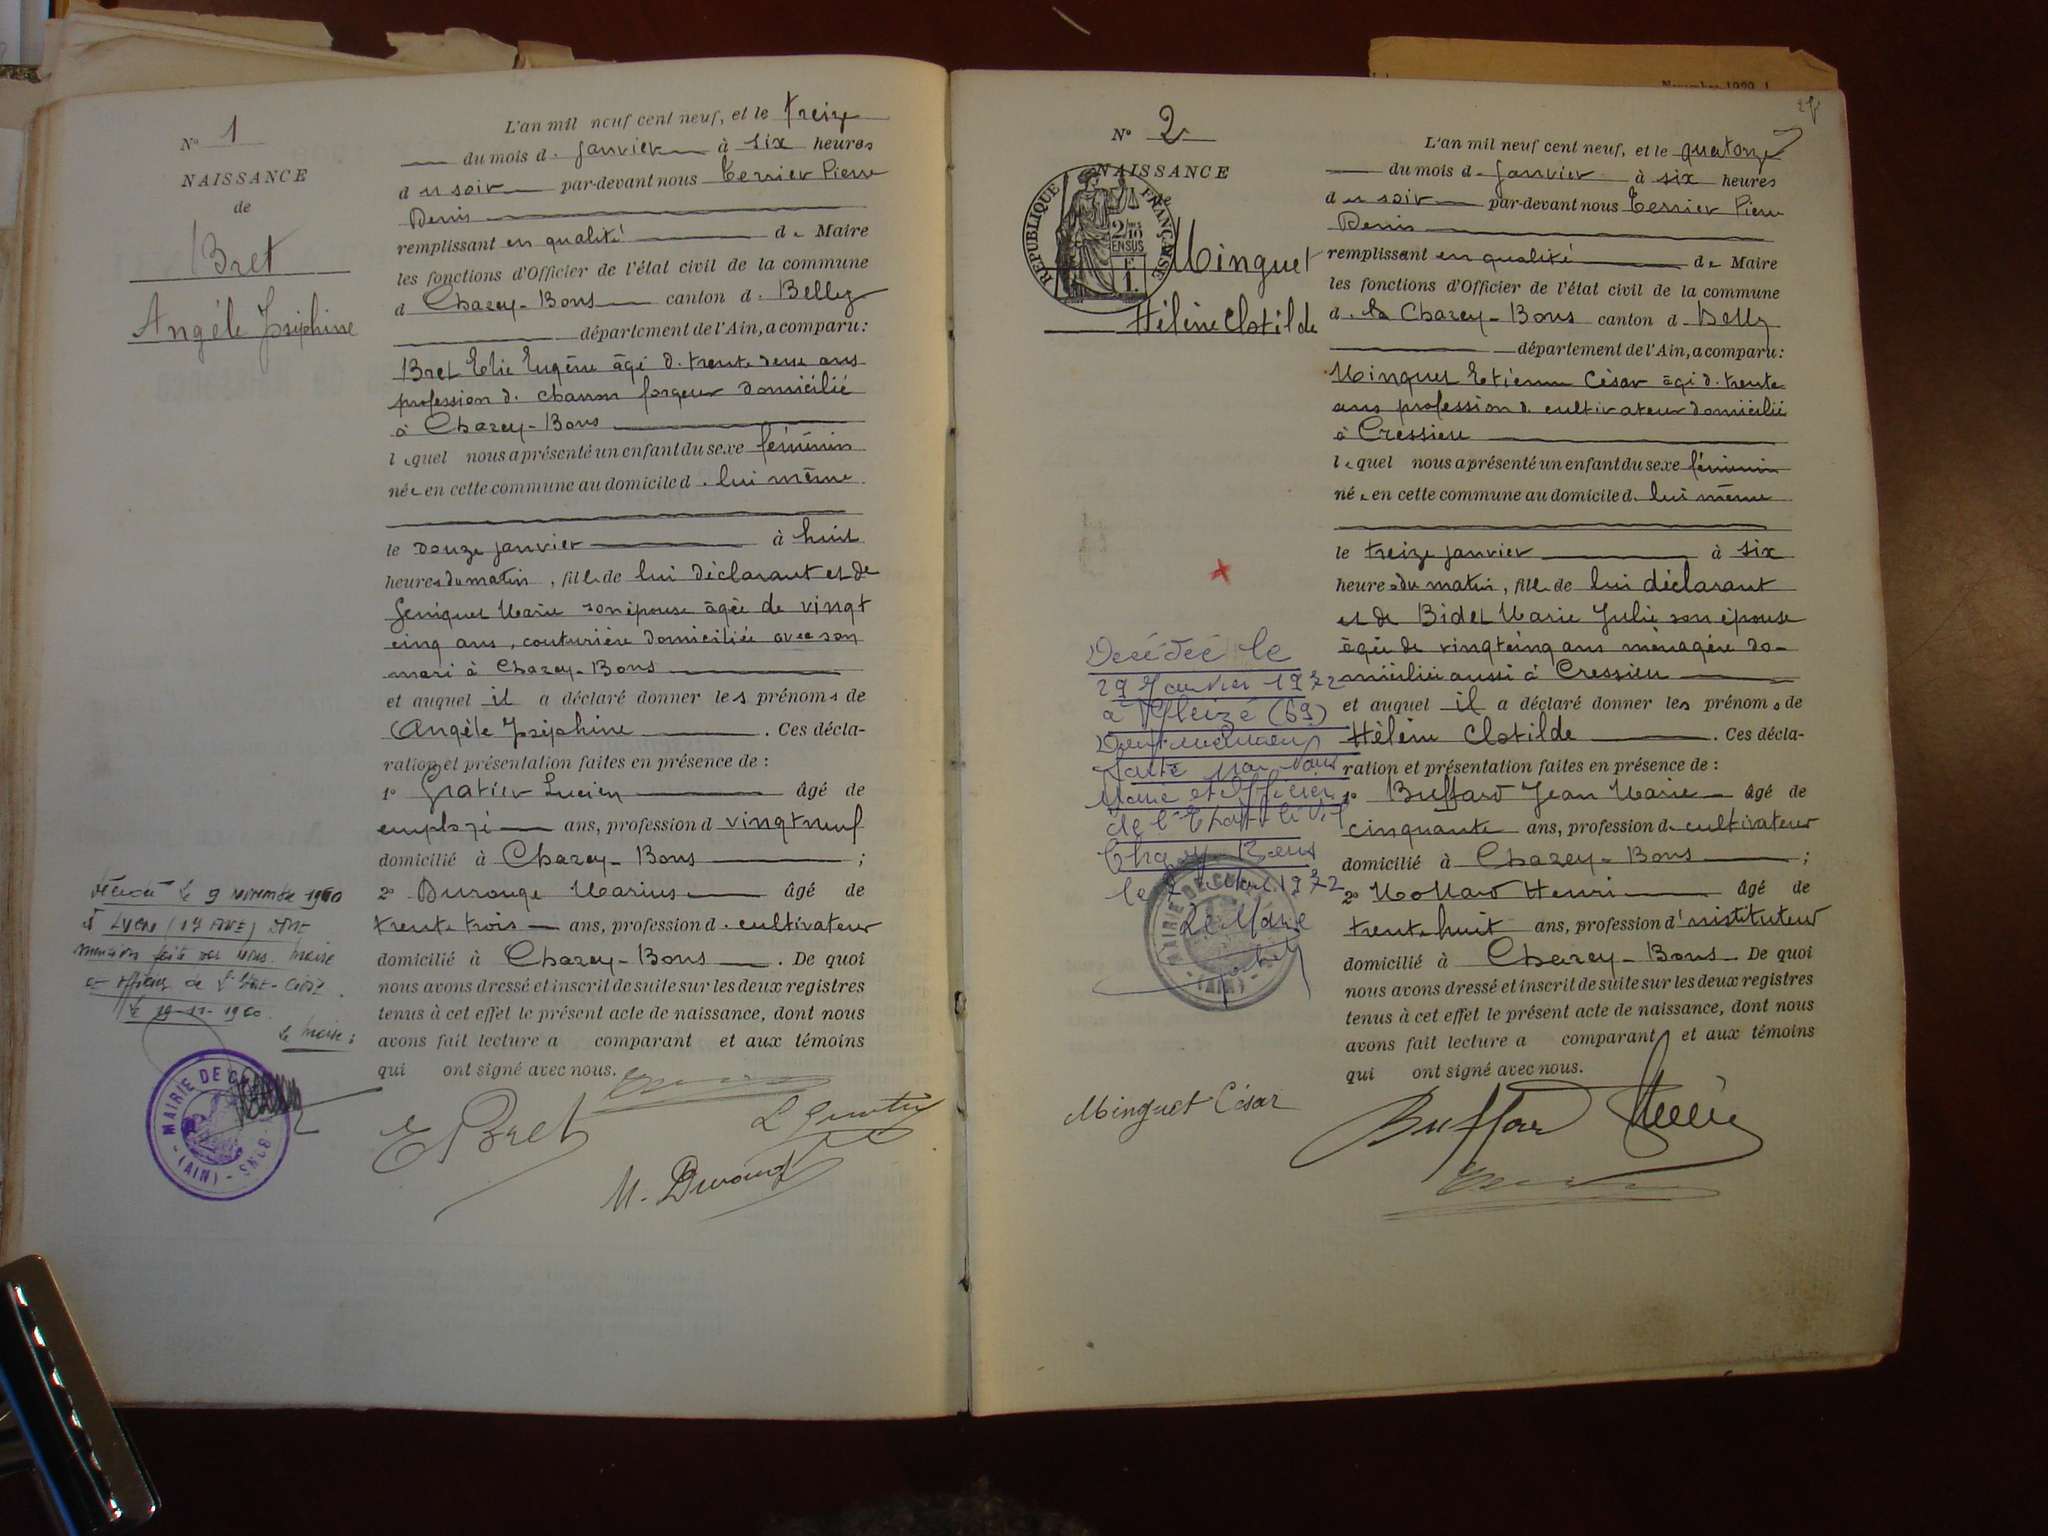 N° 1
NAISSANCE
de
Bret
Angèle Joséphine
L'an mil neuf cent neuf, et le treize
du mois de janvier à six heures
du soir par-devant nous Terrier Pierre
Denis
remplissant en qualité de Maire
les fonctions d'Officier de l'état civil de la commune
d Chazey-Bons canton d. Belley
département de l'Ain, a comparu:
Bret Elie Eugène âgé d. trente ans
profession d. charron forgeur domicilié
à Chazey-Bons
lequel nous a présenté un enfant du sexe féminin
née en cette commune au domicile d. lui même
le douze janvier à huit
heures du matin, fille de lui déclarant et de
Marie son épouse âgée de vingt
cinq ans, couturière domiciliée avec son
mari à Chazey-Bons
et auquel il a déclaré donner les prénoms de
Angèle Joséphine. Ces décla-
ration et présentation faites en présence de :
1° Gratier Lucien âgé de
employé ans, profession d vingt neuf
domicilié à Chazey-Bons ;
2° Durouge Marius âgé de
trente trois ans, profession d. cultivateur
domicilié à Chazey-Bons. De quoi
nous avons dressé et inscrit de suite sur les deux registres
tenus à cet effet le présent acte de naissance, dont nous
avons fait lecture a comparant et aux témoins
qui ont signé avec nous.
le 9 novembre 1960
à Lyon
mention faite par nous. Maire
et officier de l'Etat-Civil
le 19-11-1960.
Le Maire :
MAIRIE DE BONS (AIN)
E Bret
L Gratier
M. Durouge
N° 2
NAISSANCE
de
RÉPUBLIQUE FRANÇAISE
2/10
EN SUS
F
1.
Minguet
Hélène Clotilde
L'an mil neuf cent neuf, et le quatorze
du mois d. janvier à six heures
du soir par-devant nous Terrier Pierre
Denis
remplissant en qualité de Maire
les fonctions d'Officier de l'état civil de la commune
d. Chazey-Bons canton d. Belley
département de l'Ain, a comparu:
Minguet Etienne César âgé d. trente
ans profession d. cultivateur domicilié
à Cressieu
lequel nous a présenté un enfant du sexe féminin
née en cette commune au domicile d. lui même
le treize janvier à six
heures du matin, fille de lui déclarant
et de Bidet Marie Julie son épouse
âgée de vingt cinq ans ménagère do-
miciliée aussi à Cressieu
et auquel il a déclaré donner les prénoms de
Hélène Clotilde. Ces décla-
ration et présentation faites en présence de :
1° Buffard Jean Marie âgé de
cinquante ans, profession de cultivateur
domicilié à Chazey-Bons ;
2° Mollard Henri âgé de
trente huit ans, profession d'instituteur
domicilié à Chazey-Bons. De quoi
nous avons dressé et inscrit de suite sur les deux registres
tenus à cet effet le présent acte de naissance, dont nous
avons fait lecture a comparant et aux témoins
qui ont signé avec nous.
Décédée le
29 Janvier 1972
à Gleizé (69)
faite par nous
Maire et Officier
de l'Etat Civil
Chazey Bons
le 1972
Le Maire
MAIRIE DE (AIN)
Minguet César
Buffard